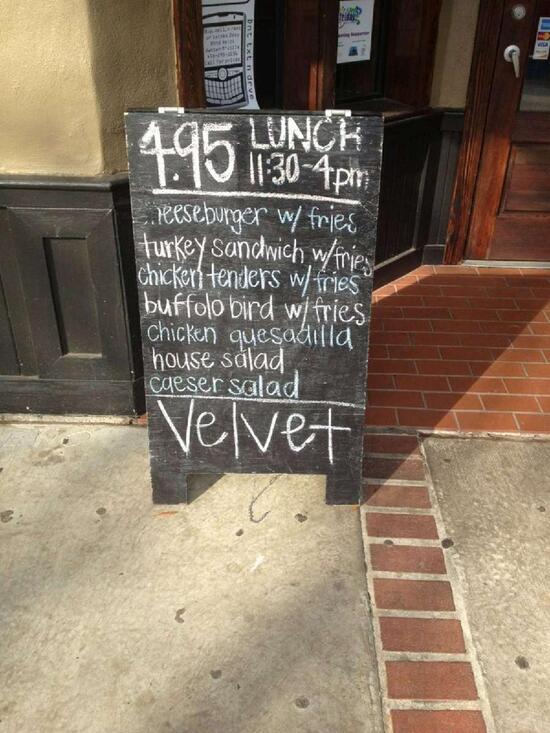 dnt txt n drve
4.95 LUNCH
11:30-4pm
cheeseburger w/ fries
turkey sandwich w/fries
chicken tenders w/ fries
buffolo bird w/ fries
chicken quesadilla
house salad
caeser salad
Velvet